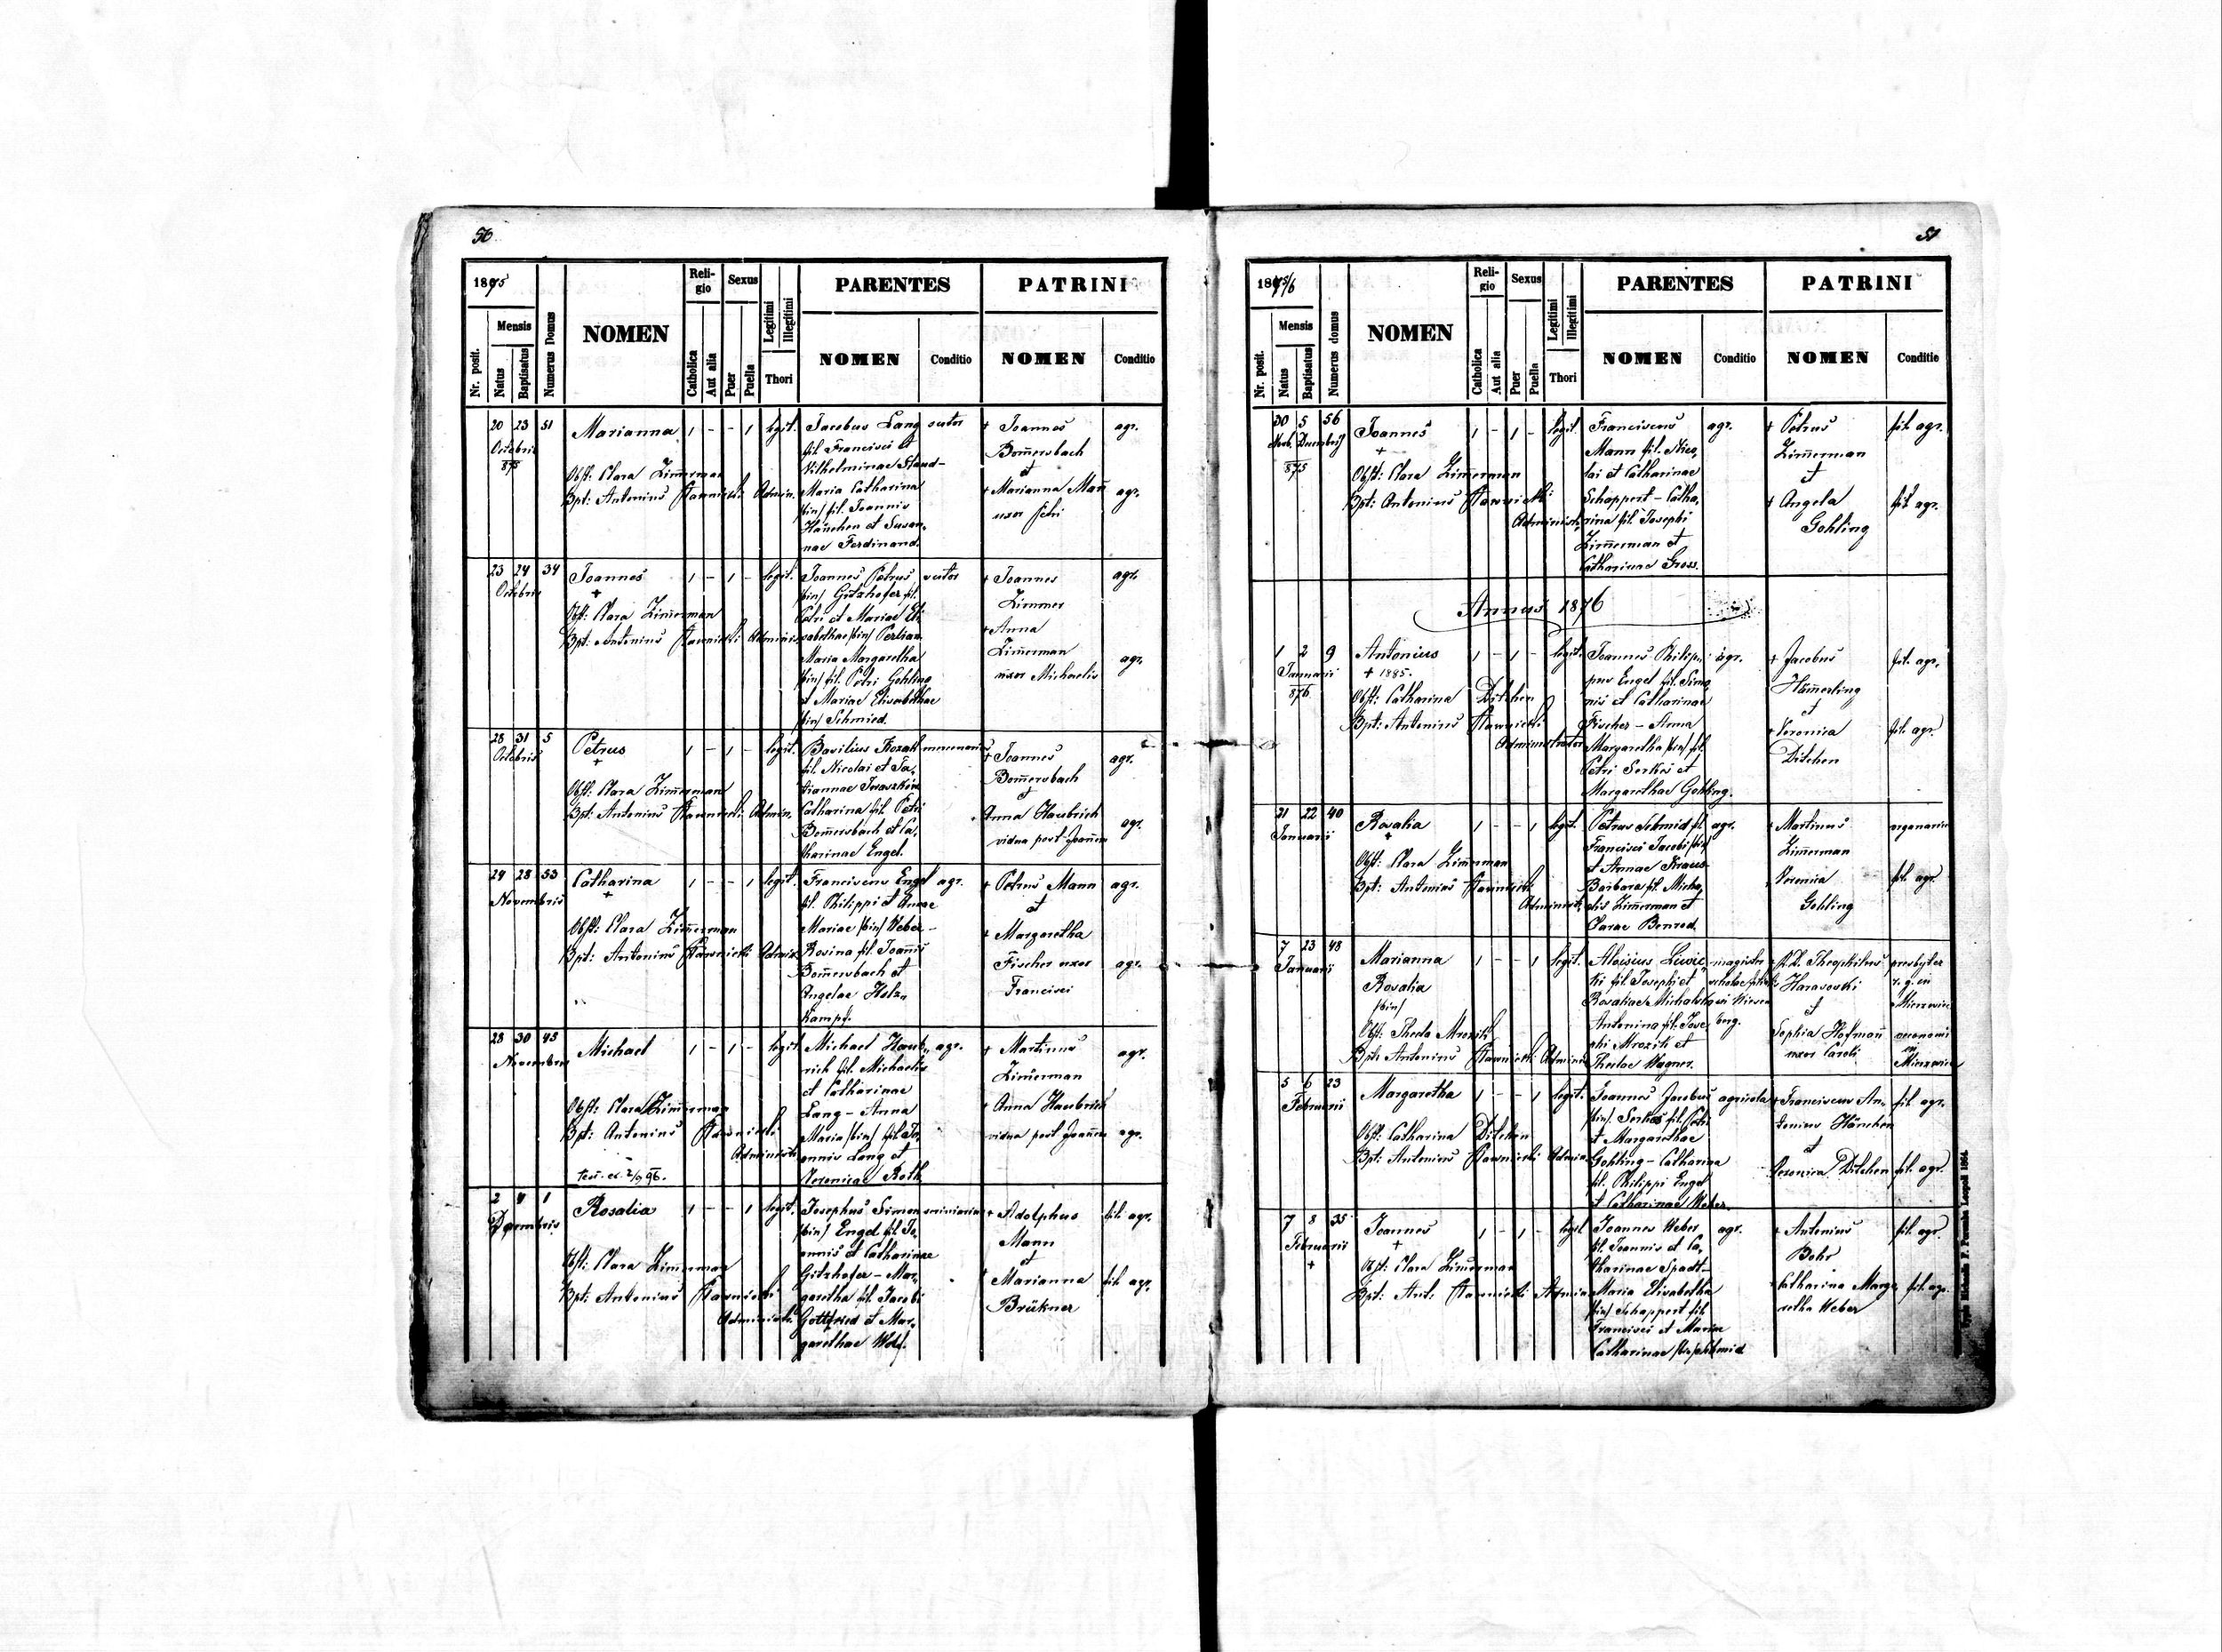 50
1875
Nr. posit.
Mensis
Natus
Baptisatus
Numerus Domus
NOMEN
Religio
Catholica
Aut alia
Sexus
Puer
Puella
Legitimi
Illegitimi
Thori
PARENTES
NOMEN
Conditio
PATRINI
NOMEN
Conditio
20 23 51
Octobris
875
Marianna
1 - - 1 legit.
Obst: Clara Zimmerman
Bpt: Antonius Admin.
Jacobus Lang sutor
fil. Francisci et
Wilhelminae Staud-
Maria Catharina
/bin/ fil. Joannis
Hänchen et Susan-
nae Ferdinand.
+ Joannes agr.
Bom̄ersbach
et
+ Marianna Man̄ agr.
uxor Petri
23 24 34
Octobris
Joannes
+
1 - 1 - legit.
Obst: Clara Zimmerman
Bpt: Antonius
Joannes Petrus sutor
/bin/ Gitzhofer fil.
Petri et Mariae Eli-
sabethae /bin/
Maria Margaretha
/bin/ fil. Petri Gohling
et Mariae Elisabethae
/bin/ Schmied.
+ Joannes agr.
Zimmer
+ Anna
Zim̄erman agr.
uxor Michaelis
28 31 5
Octobris
Petrus
+
1 - 1 - legit.
Obst: Clara Zimmerman
Bpt: Antonius Admin.
Basilius Kozak mercenarius
fil. Nicolai et Ta-
tiannae
Catharina fil. Petri
Bom̄ersbach et Ca-
tharinae Engel.
+ Joannes agr.
Bom̄ersbach
et
Anna Haubrich agr.
vidua post Joan̄em
24 28 53
Novembris
Catharina
+
1 - - 1 legit.
Obst: Clara Zimmerman
Bpt: Antonius Admin.
Franciscus Engel agr.
fil. Philippi et Annae
Mariae /bin/ Weber -
Rosina fil. Joannis
Bom̄ersbach et
Angelae Holz-
kampf.
+ Petrus Mann agr.
et
+ Margaretha
Fischer uxor agr.
Francisci
28 30 45
Novembris
Michael
1 - 1 - legit.
Obst: Clara Zimmerman
Bpt: Antonius
Administr.
Michael Haub- agr.
rich fil. Michaelis
et Catharinae
Lang - Anna
Maria /bin/ fil. Jo-
annis Lang et
Veronicae Roth
+ Martinus agr.
Zim̄erman
+ Anna Haubrich
vidua post Joan̄em agr.
2 4 1
Decembris
Rosalia
1 - - 1 legit.
Obst: Clara Zimmerman
Bpt: Antonius
Administr.
Josephus Simon scriniarius
/bin/ Engel fil. Jo-
annis et Catharinae
Gitzhofer - Mar-
garetha fil. Jacobi
Gottfried et Mar-
garethae Wolf.
+ Adolphus fil. agr.
Mann
et
Marianna fil. agr.
Brükner
51
1875/6
Nr. posit.
Mensis
Natus
Baptisatus
Numerus domus
NOMEN
Religio
Catholica
Aut alia
Sexus
Puer
Puella
Legitimi
Illegitimi
Thori
PARENTES
NOMEN
Conditio
PATRINI
NOMEN
Conditio
30 5 56
Novb. Decembris
875
Joannes
+
1 - 1 - legit.
Obst: Clara Zimmerman
Bpt: Antonius
Administr.
Franciscus agr.
Mann fil. Nico-
lai et Catharinae
Schappert - Catha-
rina fil. Josephi
Zim̄erman et
Catharinae Gross.
+ Petrus fil. agr.
Zim̄erman
et
+ Angela fil. agr.
Gohling
Annus 1876
1 2 9
Januarii
876
Antonius
+ 1885.
1 - 1 - legit.
Obst: Catharina Ditchen
Bpt: Antonius
Administrator
Joannes Philip- agr.
pus Engel fil. Simo-
nis et Catharinae
Fischer - Anna
Margaretha /bin/ fil.
Petri Serkes et
Margarethae Gohling.
+ Jacobus fil. agr.
Häm̄erling
et
Veronica fil. agr.
Ditchen
21 22 40
Januarii
Rosalia
+
1 - - 1 legit.
Obst: Clara Zimmerman
Bpt: Antonius
Administr.
Petrus Schmid fil. agr.
Francisci Jacobi /bin/
et Annae Kraus-
Barbara fil. Micha-
elis Zim̄erman et
Clarae Benrod.
+ Martinus organarius
Zim̄erman
Veronica fil. agr.
Gohling
7 23 48
Januarii
Marianna
Rosalia
/bin/
1 - - 1 legit.
Obst: Thecla Mrozik
Bpt: Antonius Admin.
Aloisius magister
fil. Josephi et scholae
Rosaliae
Antonina fil. Jose-
phi Mrozik et
Theclae Wagner.
+ R.D. Theophilus presbyter
Harasovski r. g. in
et
Sophia Hofman̄ oeconomi
uxor Caroli in
5 6 23
Februarii
Margaretha
1 - - 1 legit.
Obst: Catharina Ditchen
Bpt: Antonius Admin.
Joannes Jacobus agricola
/bin/ Serkes fil. Petri
et Margarethae
Gohling - Catharina
fil. Philippi Engel
et Catharinae Weber.
+ Franciscus An- fil. agr.
tonius Hänchen
et
Veronica Ditchen fil. agr.
7 8 35
Februarii
+
Joannes
+
1 - 1 - legit.
Obst: Clara Zimmerman
Bpt: Ant:
Joannes Weber agr.
fil. Joannis et Ca-
tharinae Spadt-
Maria Elisabetha
/bin/ Schappert fil.
Francisci et Mariae
Catharinae /bin/ Schmid
+ Antonius fil. agr.
Bohr
Catharina Marga- fil. agr.
retha Weber